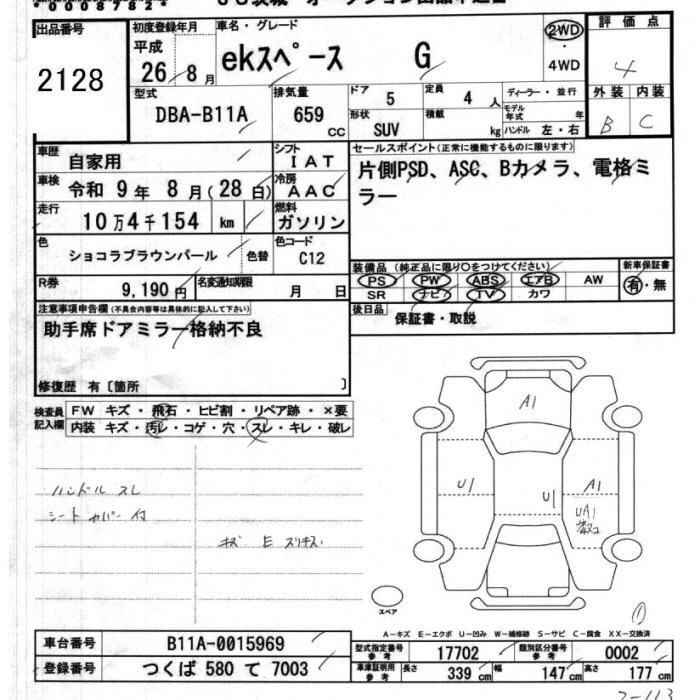 000087824
出品番号
2128
初度登録年月
平成
26年 8月
車名・グレード
ekスペース G
2WD
・
4WD
評価点
4
外装 内装
B C
型式
DBA-B11A
排気量
659 CC
ドア 5
形状 SUV
定員 4 人
積載 kg
ディーラー・並行
モデル年式 年
ハンドル 左・右
車歴 自家用
シフト IAT
車検 令和 9年 8月(28日)
冷房 AAC
走行 10万4千154 km
燃料 ガソリン
色 ショコラブラウンパール 色替
色コード C12
R券 9,190円
名変通知期限 月 日
セールスポイント(正常に機能するものに限ります)
片側PSD、ASC、Bカメラ、電格ミ
ラー
装備品(純正品に限り○をつけてください)
PS PW ABS エアB AW
SR ナビ TV カワ
新車保証書
有・無
後日品 保証書・取説
注意事項申告欄(不具合内容等は具体的に記入して下さい)
助手席ドアミラー格納不良
修復歴 有〔箇所 〕
検査員記入欄
FW キズ・飛石・ヒビ割・リペア跡・×要
内装 キズ・汚レ・コゲ・穴・スレ・キレ・破レ
ハンドル スレ
シート カバー 付
キズ E スリキズ
A1
U1
U1
A1
UA1
スペア
①
A-キズ E-エクボ U-凹み W-補修跡 S-サビ C-腐食 XX-交換済
車台番号 B11A-0015969
登録番号 つくば 580 て 7003
型式指定番号参考 17702
類別区分番号参考 0002
車庫証明用参考 長さ 339 cm 幅 147 cm 高さ 177 cm